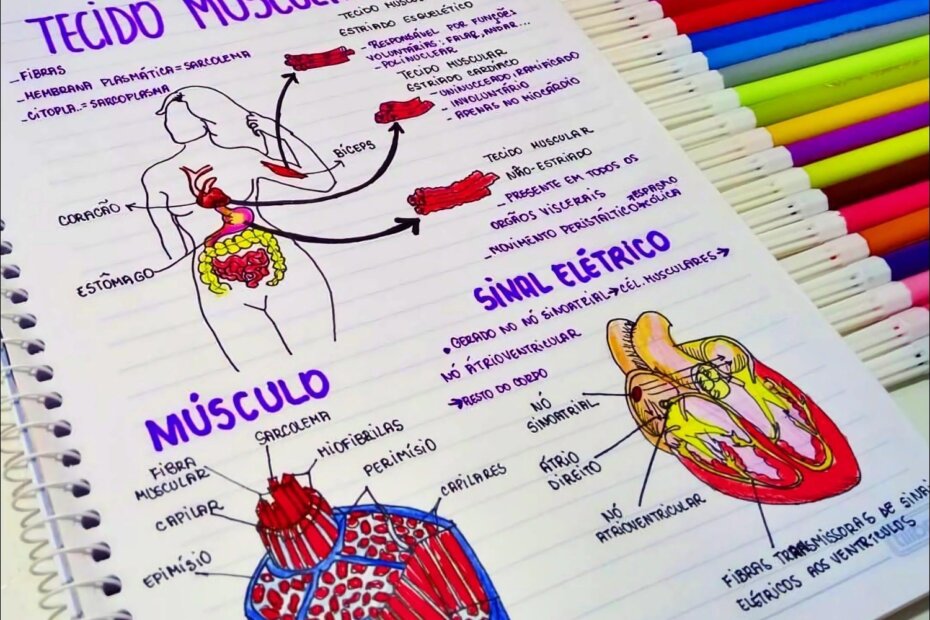 TECIDO MUSCULA
_FIBRAS
_MEMBRANA PLASMÁTICA = SARCOLEMA
_CITOPLA.. = SARCOPLASMA
ESTRIADO ESQUELÉTICO
- RESPONSÁVEL POR FUNÇÕES
VOLUNTÁRIAS; FALAR, ANDAR...
- POLINUCLEAR
TECIDO MUSCULAR
ESTRIADO CARDÍACO
- UNINUCLEADO, RAMIFICADO
- INVOLUNTÁRIO
- APENAS NO MIOCÁRDIO
TECIDO MUSCULAR
NÃO-ESTRIADO
- PRESENTE EM TODOS OS
ORGÃOS VISCERAIS
_MOVIMENTO PERISTÁLTICO
CÓLICA
BÍCEPS
CORAÇÃO
ESTÔMAGO
SINAL ELÉTRICO
. GERADO NO NÓ SINOATRIAL → CÉL. MUSCULARES →
NÓ ÁTRIOVENTRICULAR
→ RESTO DO CORDO
NÓ
SINOATRIAL
ÁTRIO
DIREITO
NÓ
ATRIOVENTRICULAR
FIBRAS TRANSMISSORAS DE SINAI
ELÉTRICOS AOS VENTRÍCULOS
MÚSCULO
SARCOLEMA
MIOFIBRILAS
FIBRA
MUSCULAR
PERIMÍSIO
CAPILARES
CAPILAR
EPIMÍSIO